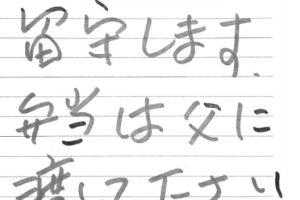 留守します.
弁当は父に
渡して下さい